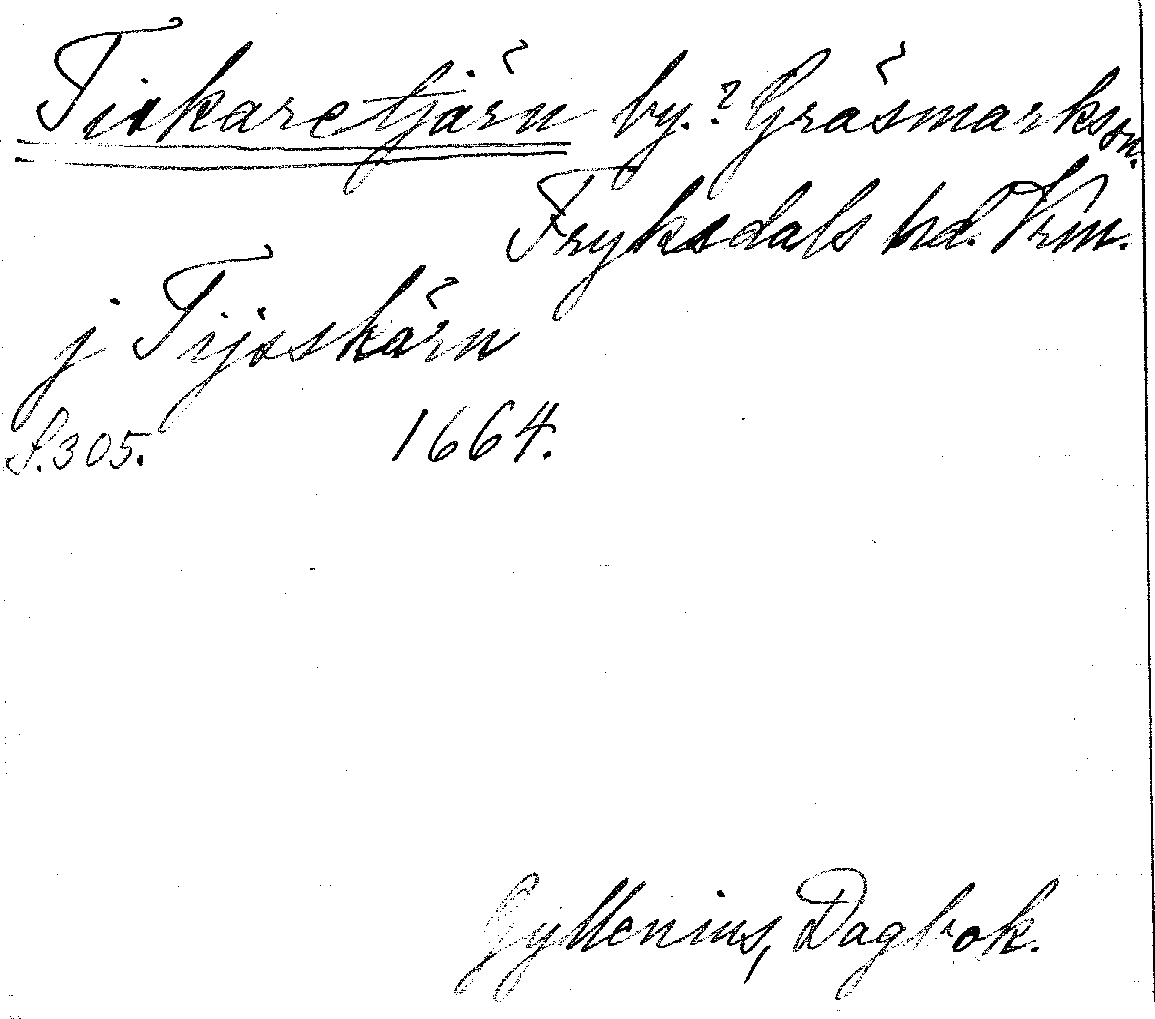 Tiskaretjärn by.? Gräsmarks sn.
Fryksdals hd. Vrm.
j Tijoskärn
S. 305. 1664.
Gyllenius, Dagbok.